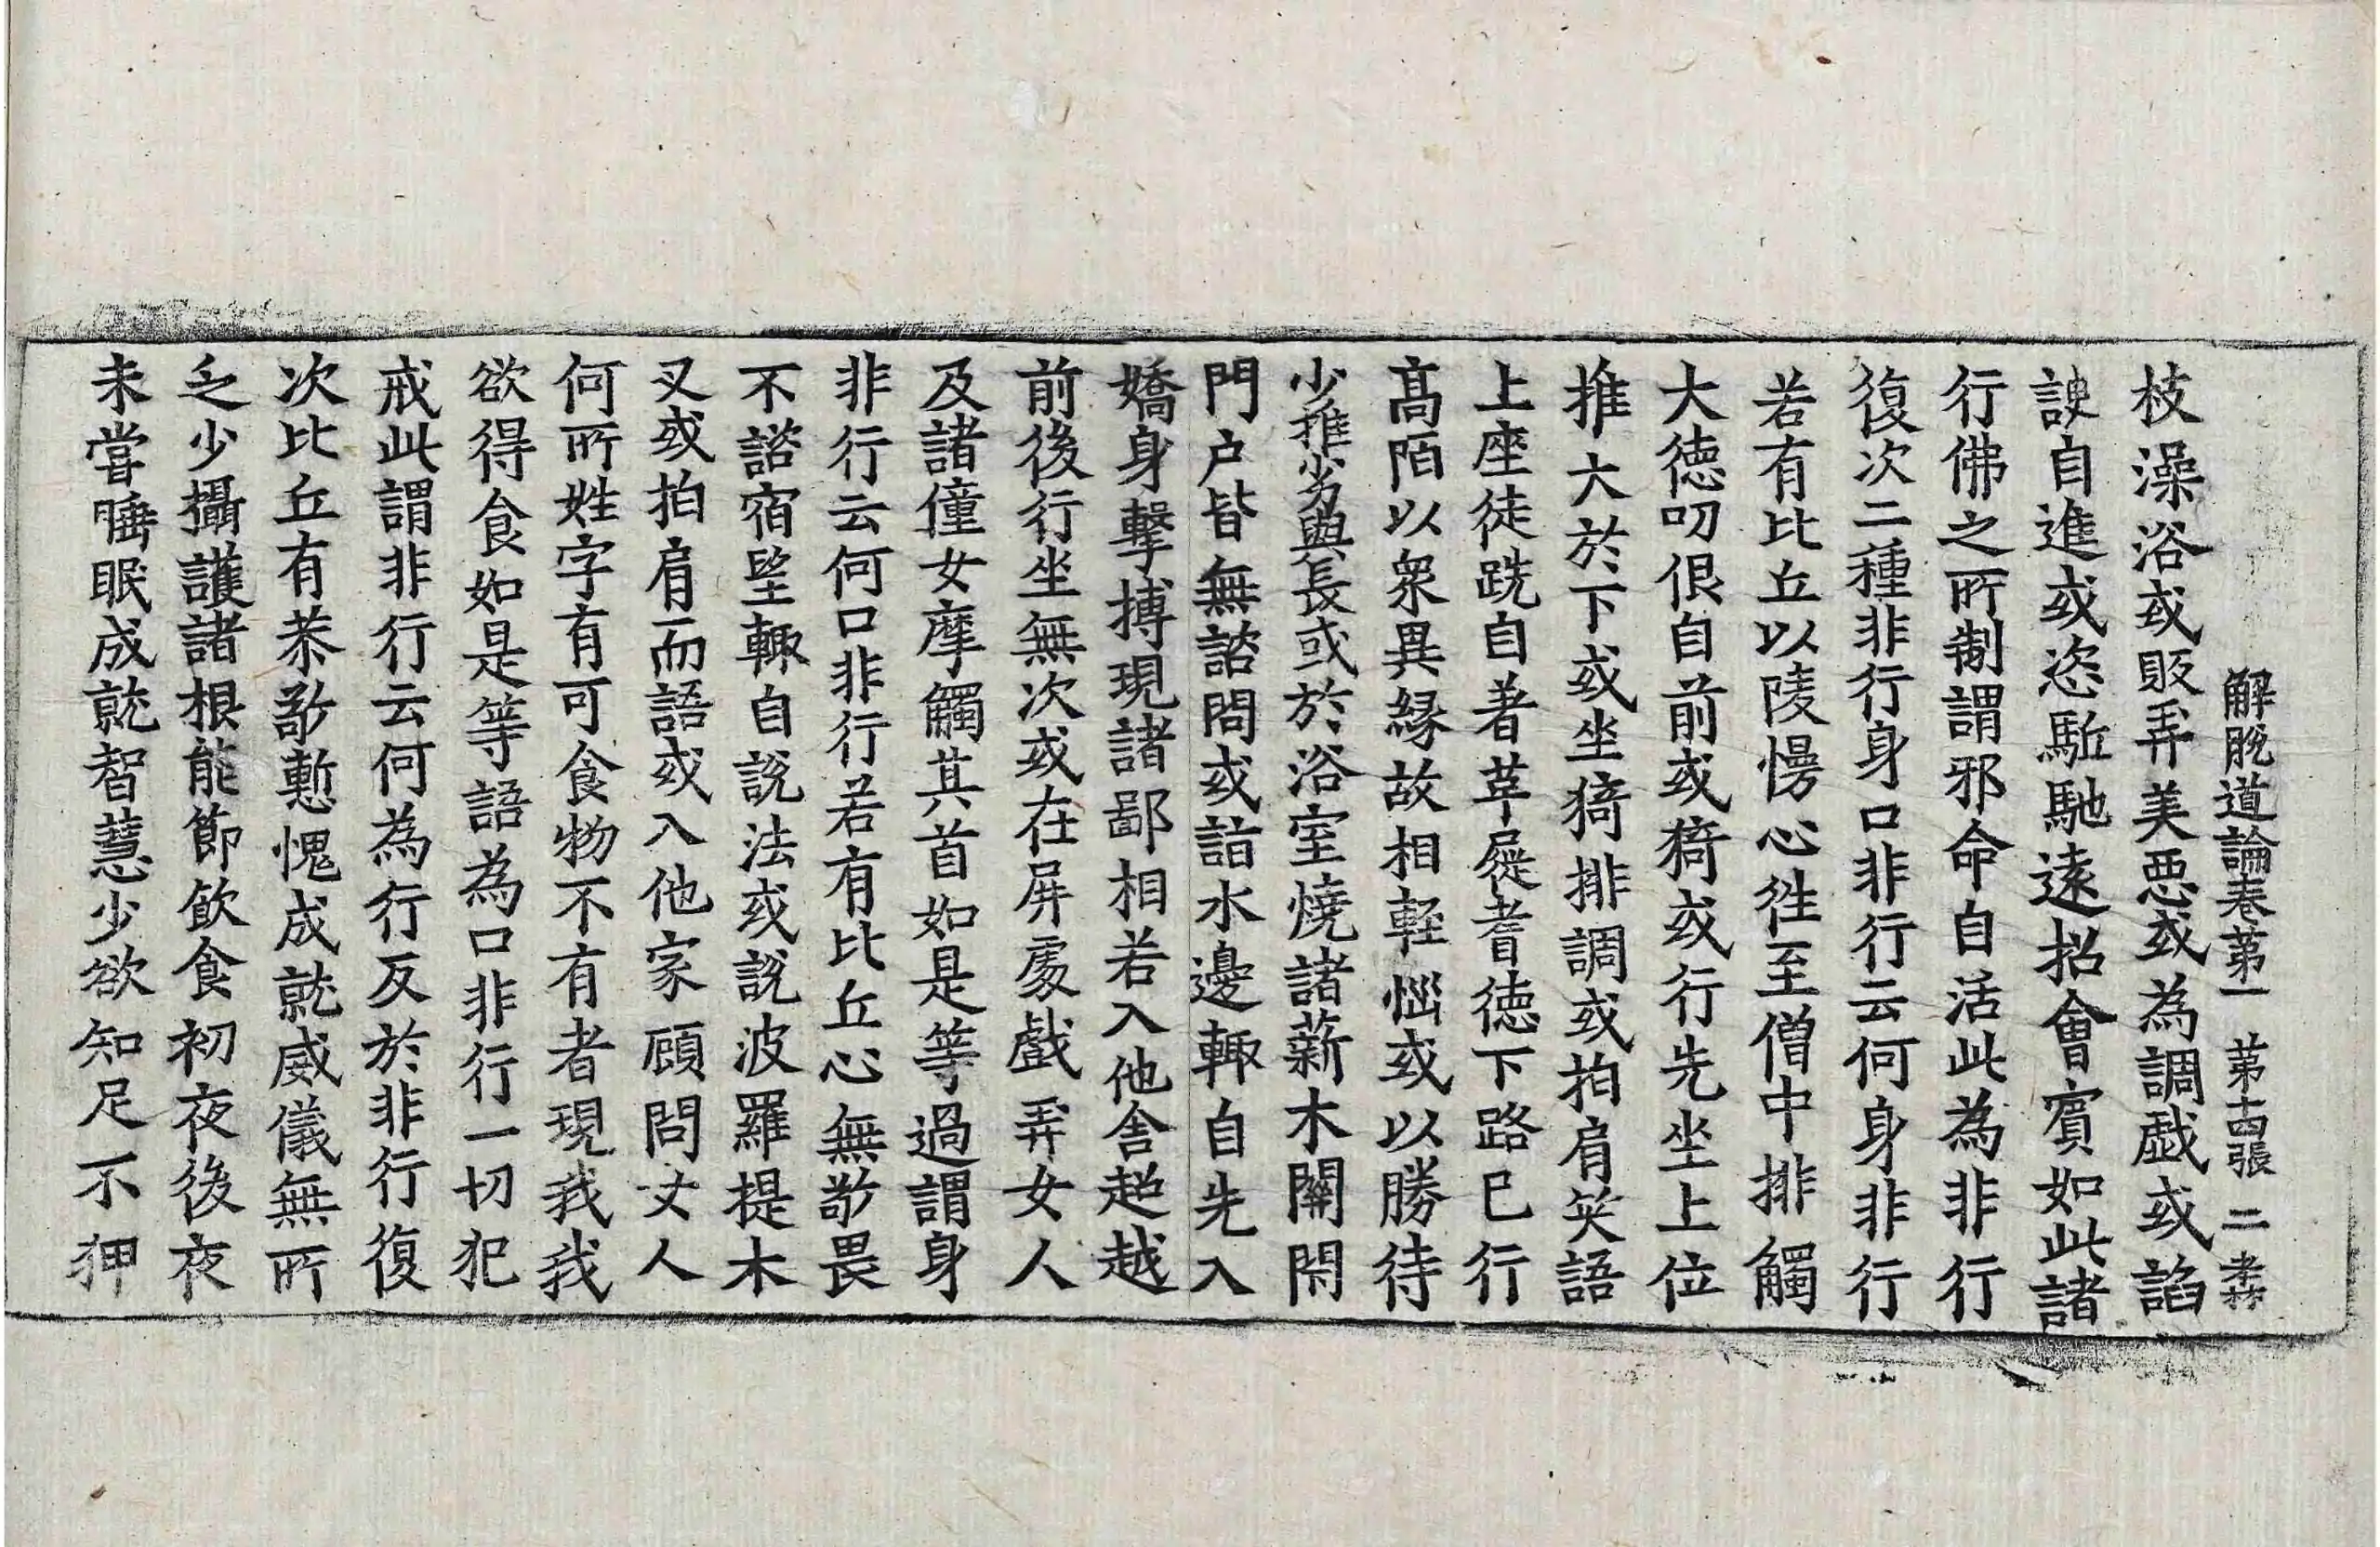 解脫道論卷苐一 苐十四張 二 孝
枝澡浴或販弄美惡或為調戱或諂
諛自進或恣駈馳遠招會賓如此諸
行佛之所制謂邪命自活此為非行
復次二種非行身口非行云何身非行
若有比丘以陵慢心徃至僧中排觸
大德叨佷自前或猗或行先坐上位
推大於下或坐猗排調或拍肩笑語
上座徒跣自著革屣耆德下路巳行
髙陌以衆異縁故相輕惱或以勝待
少推劣與長或於浴室燒諸薪木闗閇
門户皆無諮問或詣水邊輙自先入
嬌身擊搏現諸鄙相若入他舎超越
前後行坐無次或在屏處戱弄女人
及諸僮女摩觸其首如是等過謂身
非行云何口非行若有比丘心無敬畏
不諮宿望輙自說法或說波羅提木
叉或拍肩而語或入他家顧問女人
何所姓字有可食物不有者現我我
欲得食如是等語為口非行一切犯
戒此謂非行云何為行反於非行復
次比丘有恭敬慙愧成就威儀無所
乏少攝護諸根能節飲食初夜後夜
未甞睡眠成就智慧少欲知足不狎